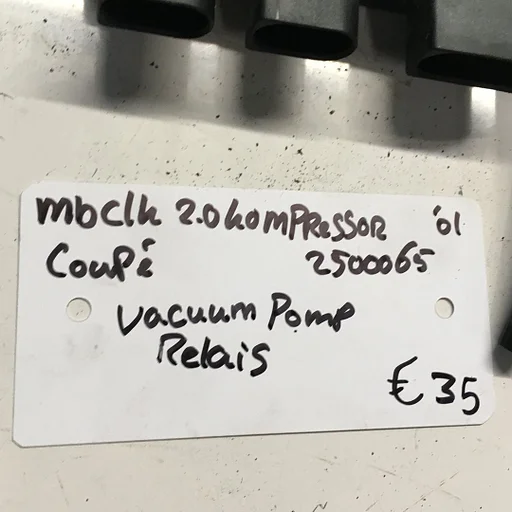 mbclk 2.0 kompRessoR '01
Coupé 2500065
Vacuum Pomp
Relais
€ 35